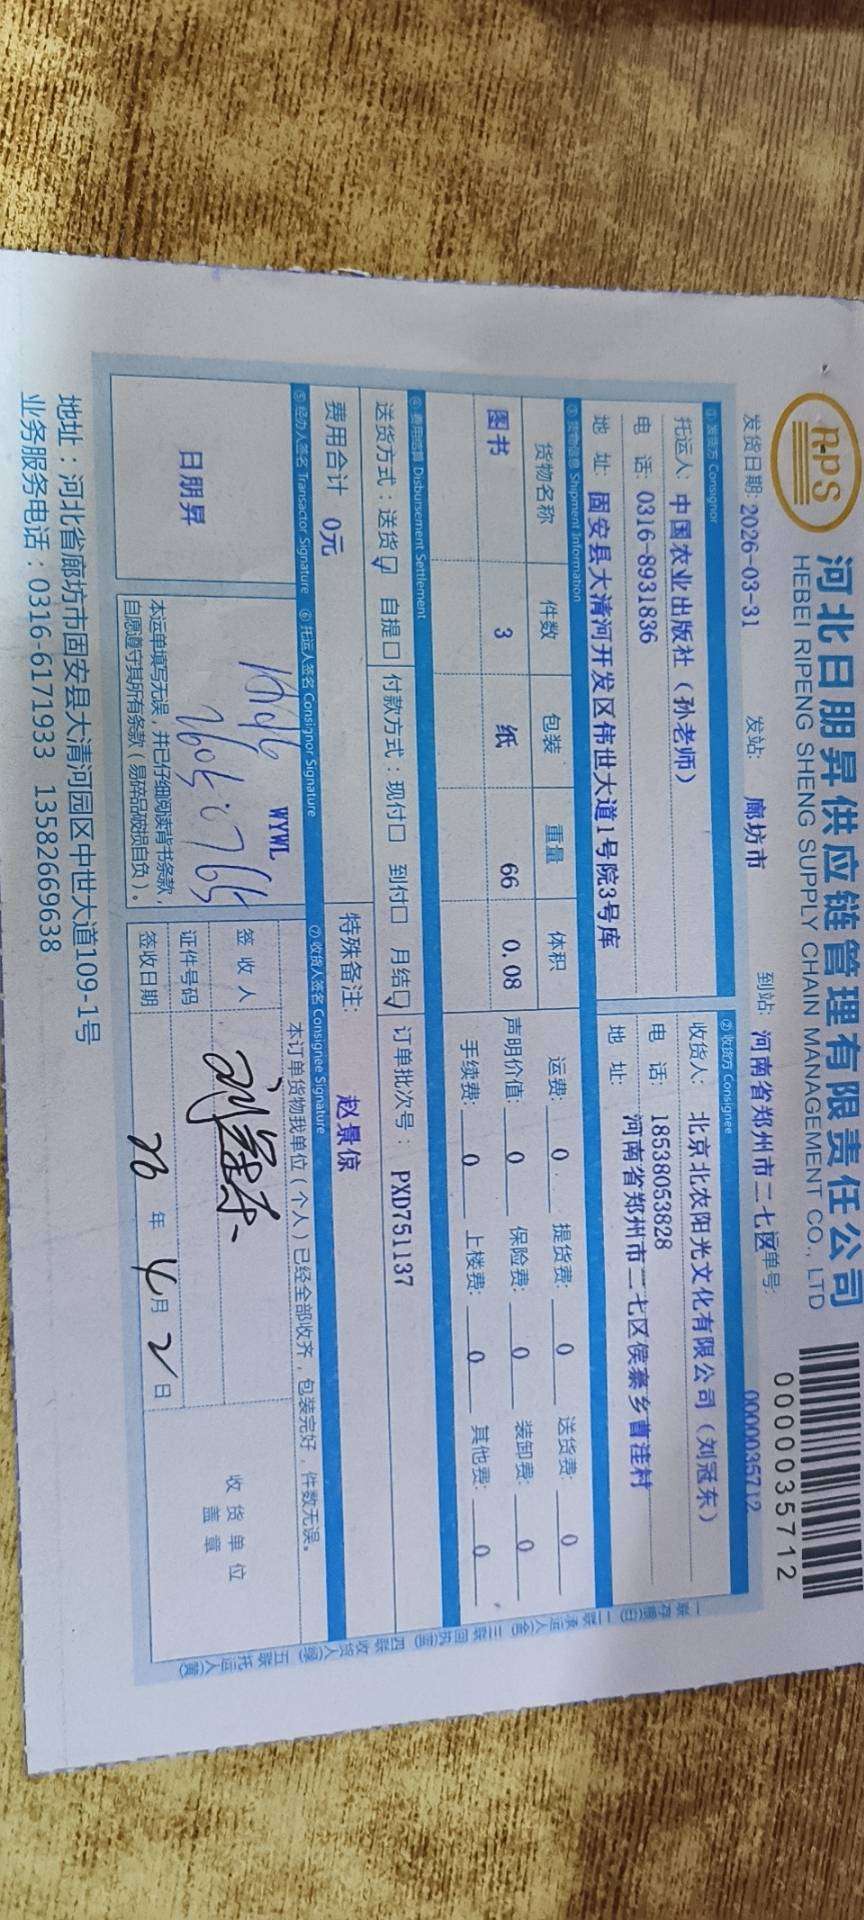 RPS
河北日朋昇供应链管理有限责任公司
HEBEI RIPENG SHENG SUPPLY CHAIN MANAGEMENT CO., LTD
0000035712
发货日期: 2026-03-31 发站: 廊坊市 到站: 河南省郑州市二七区 单号: 0000035712
①发货方 Consignor ②收货方 Consignee
托运人: 中国农业出版社（孙老师） 收货人: 北京北农阳光文化有限公司（刘冠东）
电 话: 0316-8931836 电 话: 18538053828
地 址: 固安县大清河开发区伟世大道1号院3号库 地 址: 河南省郑州市二七区侯寨乡曹洼村
③ 货物信息 Shipment Information
货物名称 件数 包装 重量 体积 运费: 0 提货费: 0 送货费: 0
图书 3 纸 66 0.08 声明价值: 0 保险费: 0 装卸费: 0
手续费: 0 上楼费: 0 其他费: 0
④ 费用结算 Disbursement Settlement
送货方式：送货☑ 自提☐ 付款方式：现付☐ 到付☐ 月结☑ 订单批次号： PXD751137
费用合计 0元 特殊备注: 赵景倞
⑤ 经办人签名 Transactor Signature ⑥ 托运人签名 Consignor Signature ⑦ 收货人签名 Consignee Signature
日朋昇
WYWL
本运单填写无误，并已仔细阅读背书条款，
自愿遵守其所有条款（易碎品破损自负）。
本订单货物我单位（个人）已经全部收齐，包装完好，件数无误。
签 收 人
证件号码
签收日期 26 年 4 月 2 日
收 货 单 位
盖 章
地址：河北省廊坊市固安县大清河园区中世大道109-1号
业务服务电话：0316-6171933 13582669638